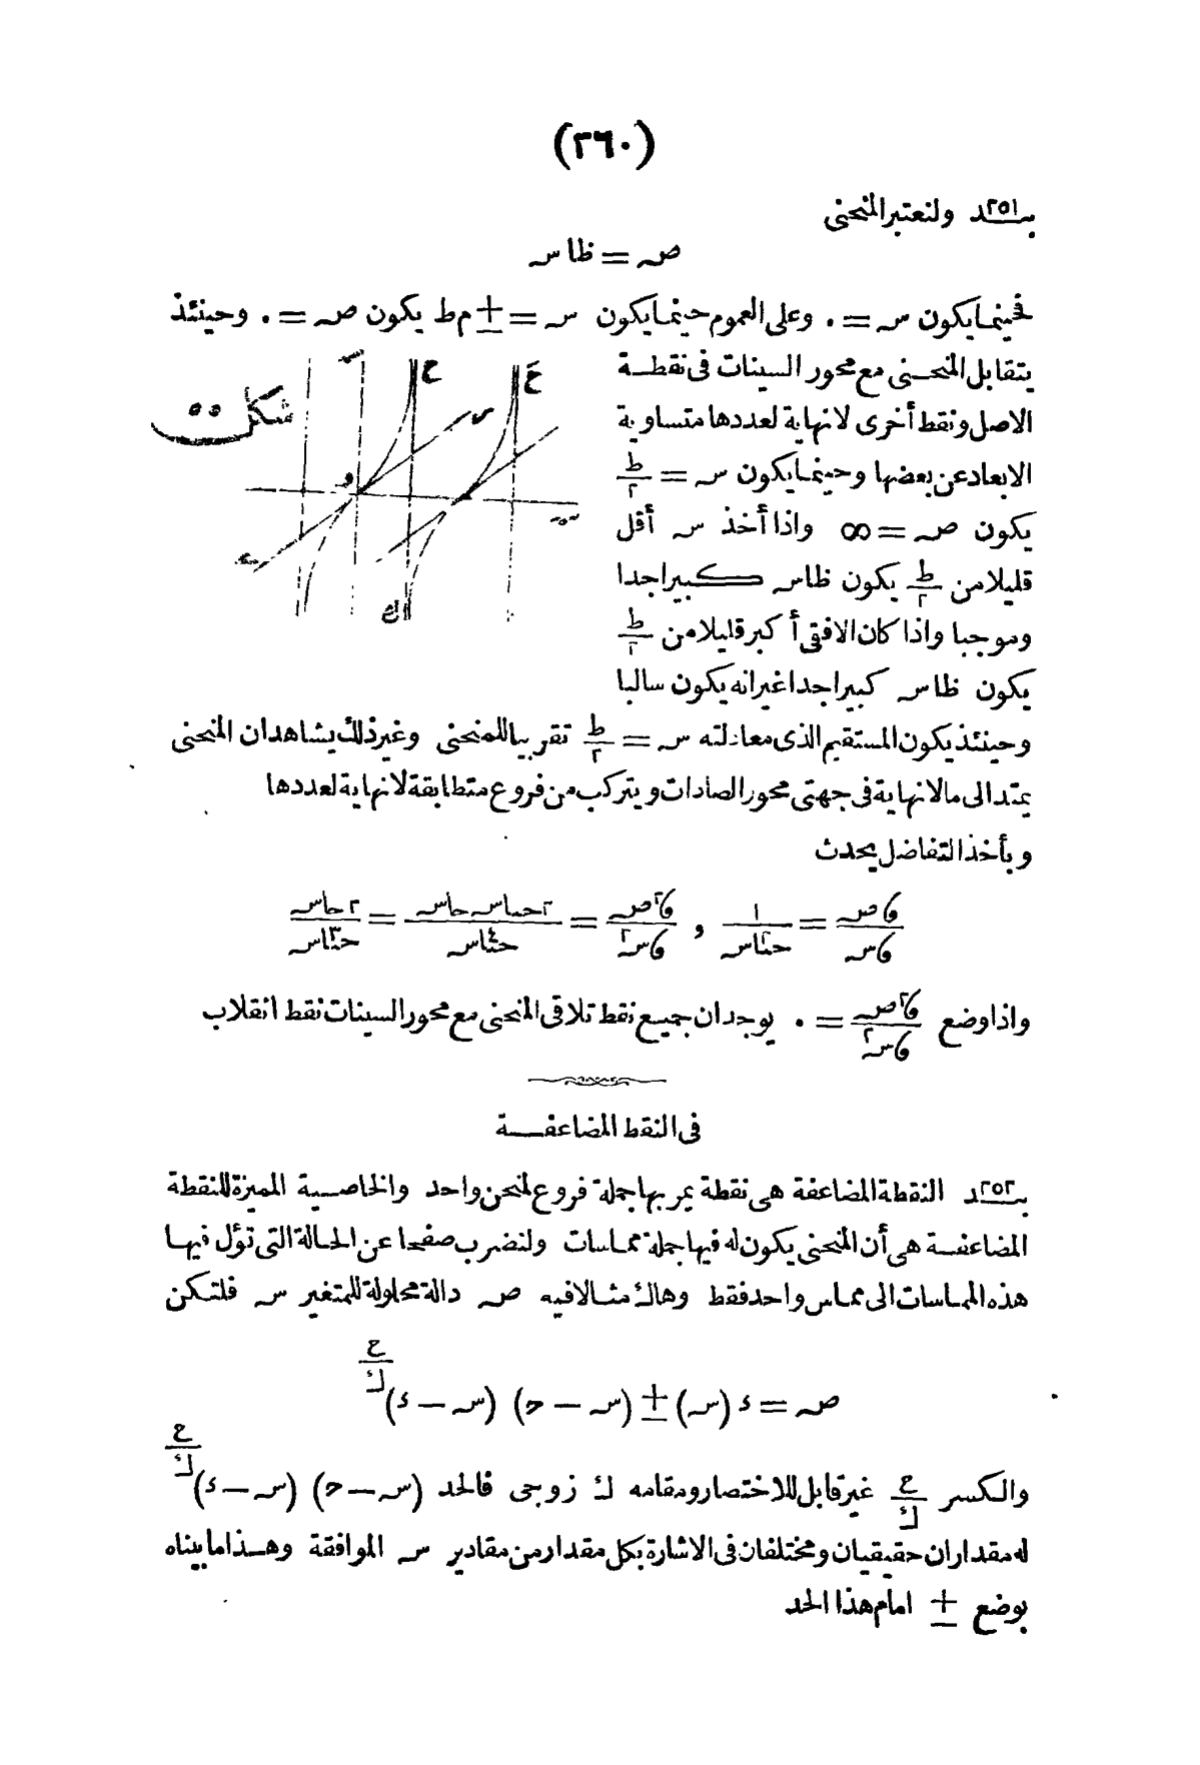 (٢٦٠)
بند ٢٥١ ولنعتبر المنحنى
صـ = ظا سـ
فحينما يكون سـ = ٠ وعلى العموم حينما يكون سـ = ± م ط يكون صـ = ٠ وحينئذ
يتقابل المنحنى مع محور السينات فى نقطة
الاصل ونقط أخرى لا نهاية لعددها متساوية
الابعاد عن بعضها وحينما يكون سـ = ط/٢
يكون صـ = ∞ واذا أخذ سـ أقل
قليلا من ط/٢ يكون ظا سـ كبيرا جدا
وموجبا واذا كان الافقى أكبر قليلا من ط/٢
يكون ظا سـ كبيرا جدا غير انه يكون سالبا
شكل ٥٥
ع
عَ
و
ك
وحينئذ يكون المستقيم الذى معادلته سـ = ط/٢ تقربيا للمنحنى وغير ذلك يشاهد ان المنحنى
يمتد الى ما لا نهاية فى جهتى محور الصادات ويتركب من فروع متطابقة لا نهاية لعددها
وبأخذ التفاضل يحدث
ﻭصـ/ﻭسـ = ١/حتا٢سـ , ﻭ٢صـ/ﻭسـ٢ = ٢حتاسـ حاسـ/حتا٤سـ = ٢حاسـ/حتا٣سـ
واذا وضع ﻭ٢صـ/ﻭسـ٢ = ٠ يوجد ان جميع نقط تلاقى المنحنى مع محور السينات نقط انقلاب
فى النقط المضاعفة
بند ٢٥٢ النقطة المضاعفة هى نقطة يمر بها جملة فروع لمنحن واحد والخاصية المميزة للنقطة
المضاعفة هى أن المنحنى يكون له فيها جملة مماسات ولنضرب صفحا عن الحالة التى تؤل فيها
هذه المماسات الى مماس واحد فقط وهاك مثالا فيه صـ دالة محلولة للمتغير سـ فلتكن
صـ = ء (سـ) ± (سـ − حـ) (سـ − ء)^ع/ك
والكسر ع/ك غير قابل للاختصار ومقامه ك زوجى فالحد (سـ − حـ) (سـ − ء)^ع/ك
له مقداران حقيقيان ومختلفان فى الاشارة بكل مقدار من مقادير سـ الموافقة وهذا ما بيناه
بوضع ± امام هذا الحد